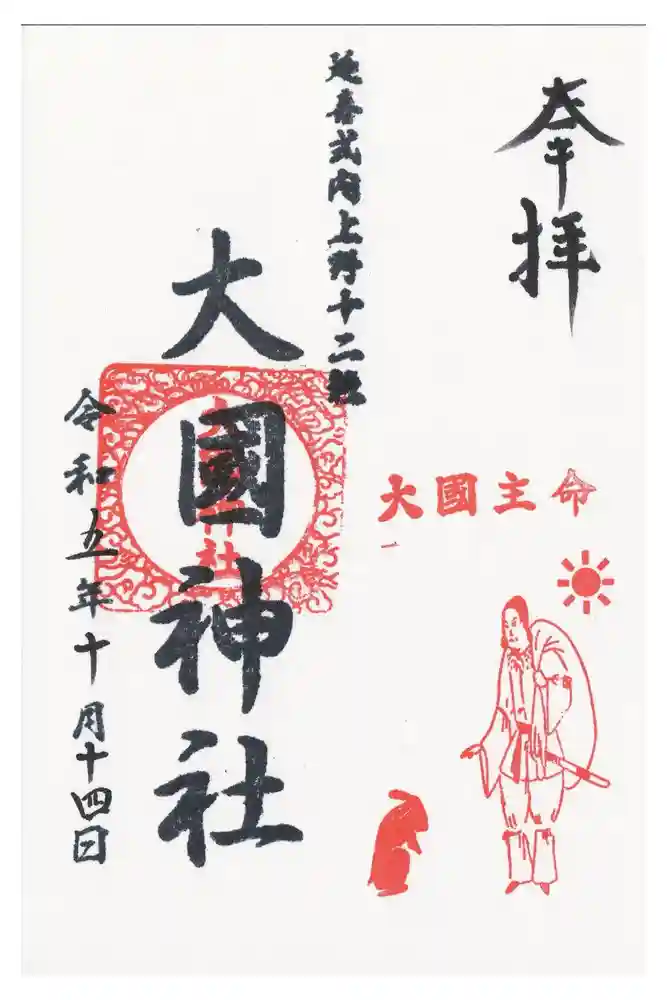 奉拝
大國主命
延喜式内上野十二社
大國神社
大國神社
令和五年十月十四日